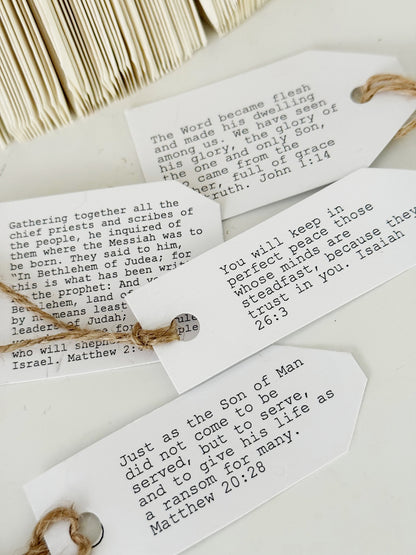 The Word became flesh
and made his dwelling
among us. We have seen
his glory, the glory of
the one and only Son,
came from the
full of grace
John 1:14
Gathering together all the
chief priests and scribes of
the people, he inquired of
them where the Messiah was to
be born. They said to him,
"In Bethlehem of Judea; for
this is what has been
the prophet: And
Bethlehem, land
by no means least
leaders of Judah;
who will
Israel. Matthew
You will keep in
perfect peace those
whose minds are
steadfast, because they
trust in you. Isaiah
26:3
Just as the Son of Man
did not come to be
served, but to serve,
and to give his life as
a ransom for many.
Matthew 20:28